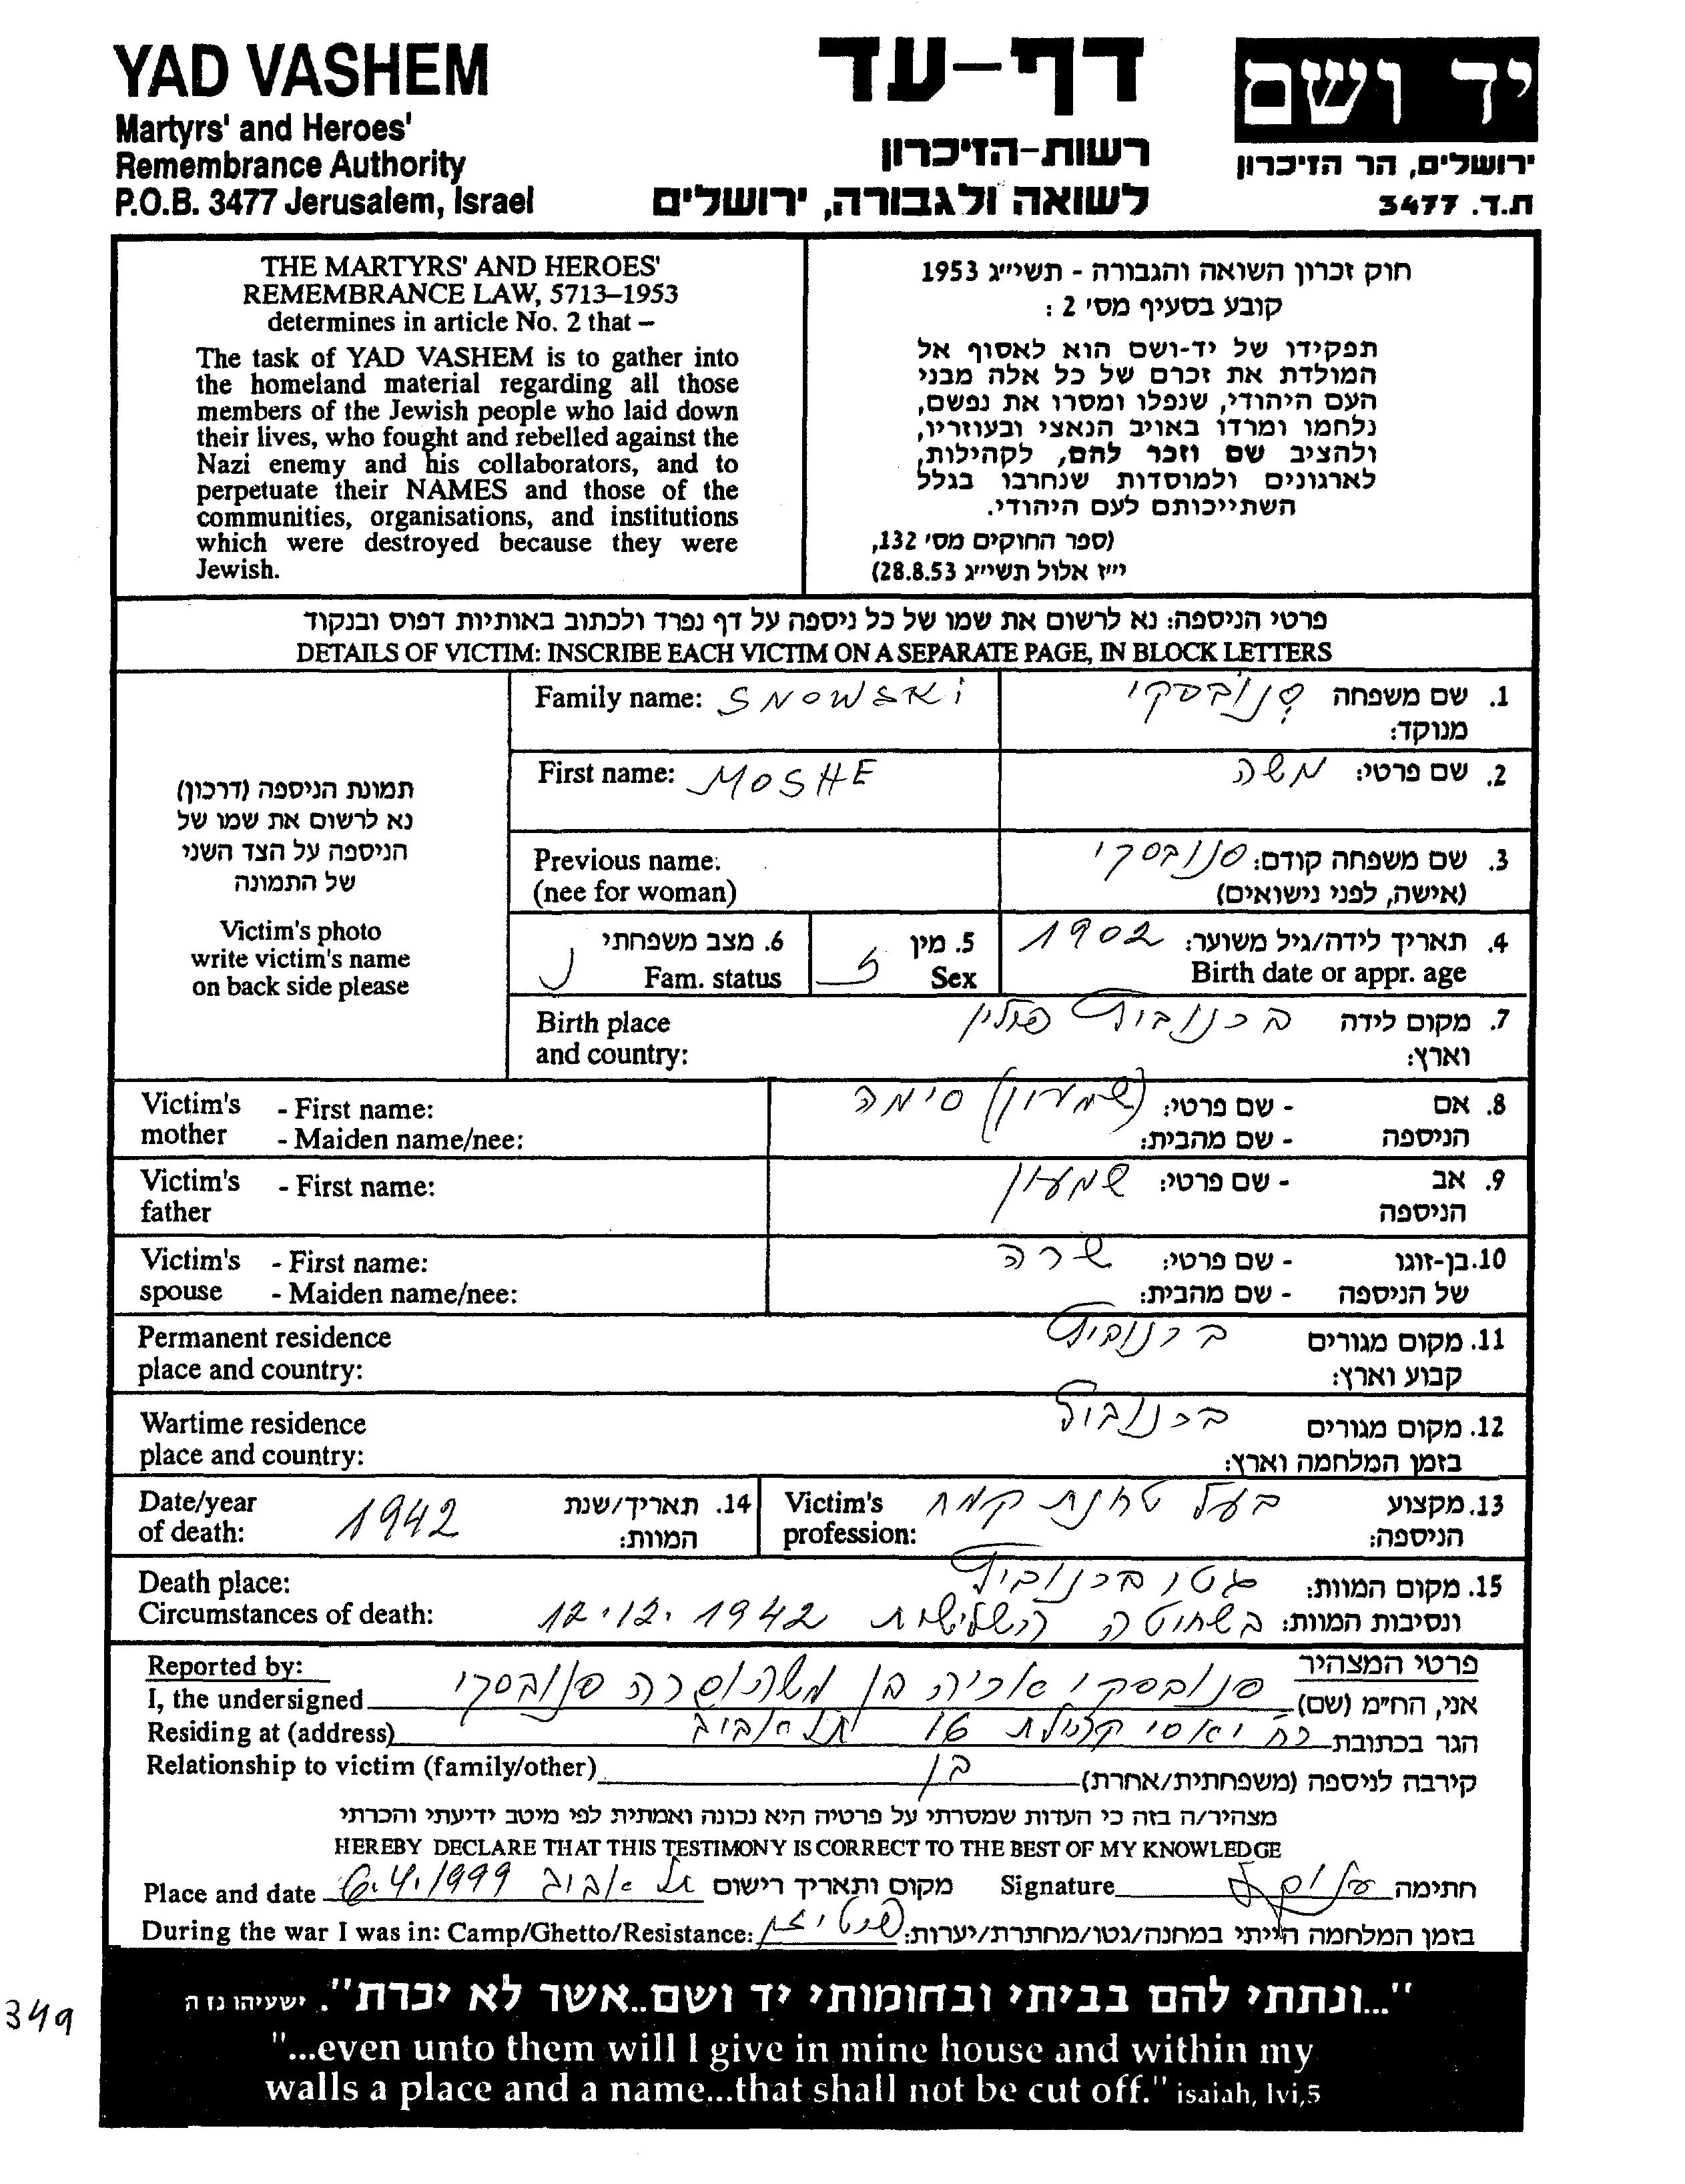 YAD VASHEM
Martyrs' and Heroes'
Remembrance Authority
P.O.B. 3477 Jerusalem, Israel
דף-עד
רשות-הזיכרון
לשואה ולגבורה, ירושלים
יד ושם
ירושלים, הר הזיכרון
ת.ד. 3477
THE MARTYRS' AND HEROES'
REMEMBRANCE LAW, 5713–1953
determines in article No. 2 that –
The task of YAD VASHEM is to gather into
the homeland material regarding all those
members of the Jewish people who laid down
their lives, who fought and rebelled against the
Nazi enemy and his collaborators, and to
perpetuate their NAMES and those of the
communities, organisations, and institutions
which were destroyed because they were
Jewish.
חוק זכרון השואה והגבורה - תשי״ג 1953
קובע בסעיף מס׳ 2 :
תפקידו של יד-ושם הוא לאסוף אל
המולדת את זכרם של כל אלה מבני
העם היהודי, שנפלו ומסרו את נפשם,
נלחמו ומרדו באויב הנאצי ובעוזריו,
ולהציב שם וזכר להם, לקהילות,
לארגונים ולמוסדות שנחרבו בגלל
השתייכותם לעם היהודי.
(ספר החוקים מס׳ 132,
י״ז אלול תשי״ג 28.8.53)
פרטי הניספה: נא לרשום את שמו של כל ניספה על דף נפרד ולכתוב באותיות דפוס ובנקוד
DETAILS OF VICTIM: INSCRIBE EACH VICTIM ON A SEPARATE PAGE, IN BLOCK LETTERS
תמונת הניספה (דרכון)
נא לרשום את שמו של
הניספה על הצד השני
של התמונה
Victim's photo
write victim's name
on back side please
Family name: SNOWSKi
1. שם משפחה סנובסקי
מנוקד:
First name: MOSHE
2. שם פרטי: משה
Previous name:
(nee for woman)
3. שם משפחה קודם: סנובסקי
(אישה, לפני נישואים)
4. תאריך לידה/גיל משוער: 1902
Birth date or appr. age
5. מין ז
Sex
6. מצב משפחתי נ
Fam. status
Birth place
and country:
7. מקום לידה
וארץ: פולין
Victim's - First name:
mother - Maiden name/nee:
8. אם - שם פרטי: (שמעון) סימה
הניספה - שם מהבית:
Victim's - First name:
father
9. אב - שם פרטי: שמעון
הניספה
Victim's - First name:
spouse - Maiden name/nee:
10. בן-זוגו - שם פרטי: שרה
של הניספה - שם מהבית:
Permanent residence
place and country:
11. מקום מגורים
קבוע וארץ:
Wartime residence
place and country:
12. מקום מגורים
בזמן המלחמה וארץ:
Date/year
of death: 1942
14. תאריך/שנת
המוות:
Victim's
profession:
13. מקצוע בעל טחנת קמח
הניספה:
Death place:
Circumstances of death:
15. מקום המוות: גטו
ונסיבות המוות: בשחיטה השלישית 12.12.1942
Reported by:
פרטי המצהיר
I, the undersigned
אני, הח״מ (שם) סנובסקי אריה בן משה ושרה סנובסקי
Residing at (address)
הגר בכתובת רח קהילת 16 תל אביב
Relationship to victim (family/other)
קירבה לניספה (משפחתית/אחרת) בן
מצהיר/ה בזה כי העדות שמסרתי על פרטיה היא נכונה ואמתית לפי מיטב ידיעתי והכרתי
HEREBY DECLARE THAT THIS TESTIMONY IS CORRECT TO THE BEST OF MY KNOWLEDGE
Place and date 6.4.1999 תל אביב מקום ותאריך רישום
Signature חתימה
During the war I was in: Camp/Ghetto/Resistance:
בזמן המלחמה הייתי במחנה/גטו/מחתרת/יערות:
349
"...ונתתי להם בביתי ובחומותי יד ושם..אשר לא יכרת". ישעיהו נז ה
"...even unto them will I give in mine house and within my
walls a place and a name...that shall not be cut off." isaiah, lvi,5